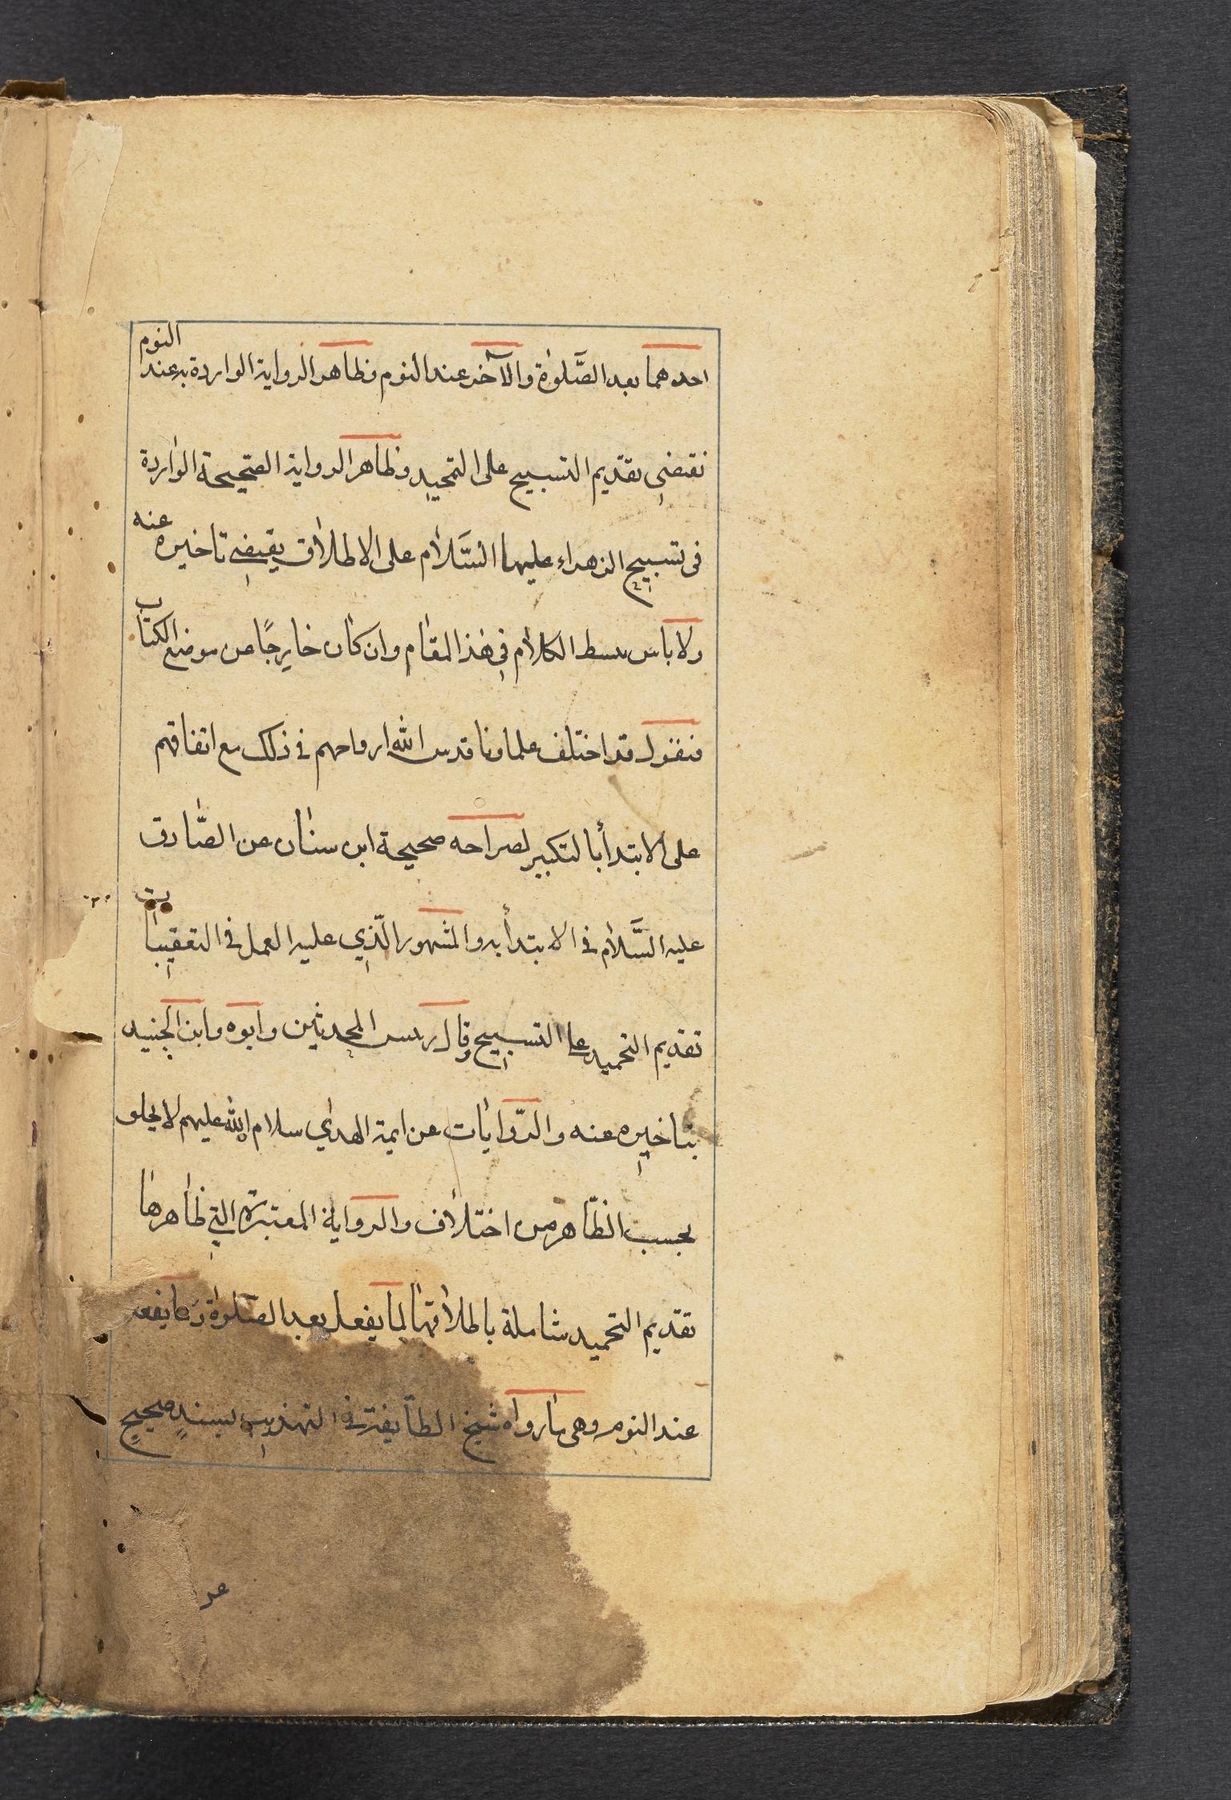 احدهما بعد الصَّلوٰة والآخر عند النوم وظاهر الرواية الواردة به عند النوم
تقتضى تقديم التسبيح على التحميد وظاهر الرواية الصحيحة الواردة
فى تسبيح الزهراء عليها السَّلام على الاطلاق يقتضى تاخيره عنه
ولا باس ببسط الكلام فى هٰذا المقام وان كان خارجًا عن موضع الكتاب
فنقول قد اختلف علماونا قدس الله ارواحهم فى ذلك مع اتفاقهم
على الابتدأ بالتكبير لصراحه صحيحة ابن سنان عن الصّادق
عليه السَّلام فى الابتدأ به والمشهور الّذى عليه العمل فى التعقيبات
تقديم التحميد على التسبيح وقال رئيس المحدثين وابوه وابن الجنيد
بتاخيره عنه والرّوايات عن ايمة الهدى سلام الله عليهم لا يخلو
بحسب الظّاهر من اختلاف والرواية المعتبرة التى ظاهرها
تقديم التحميد شاملة باطلاقها لما يفعل بعد الصّلوٰة وما يفعل
عند النوم وهى ما رواه شيخ الطّايفة فى التهذيب بسندٍ صحيحٍ
عن